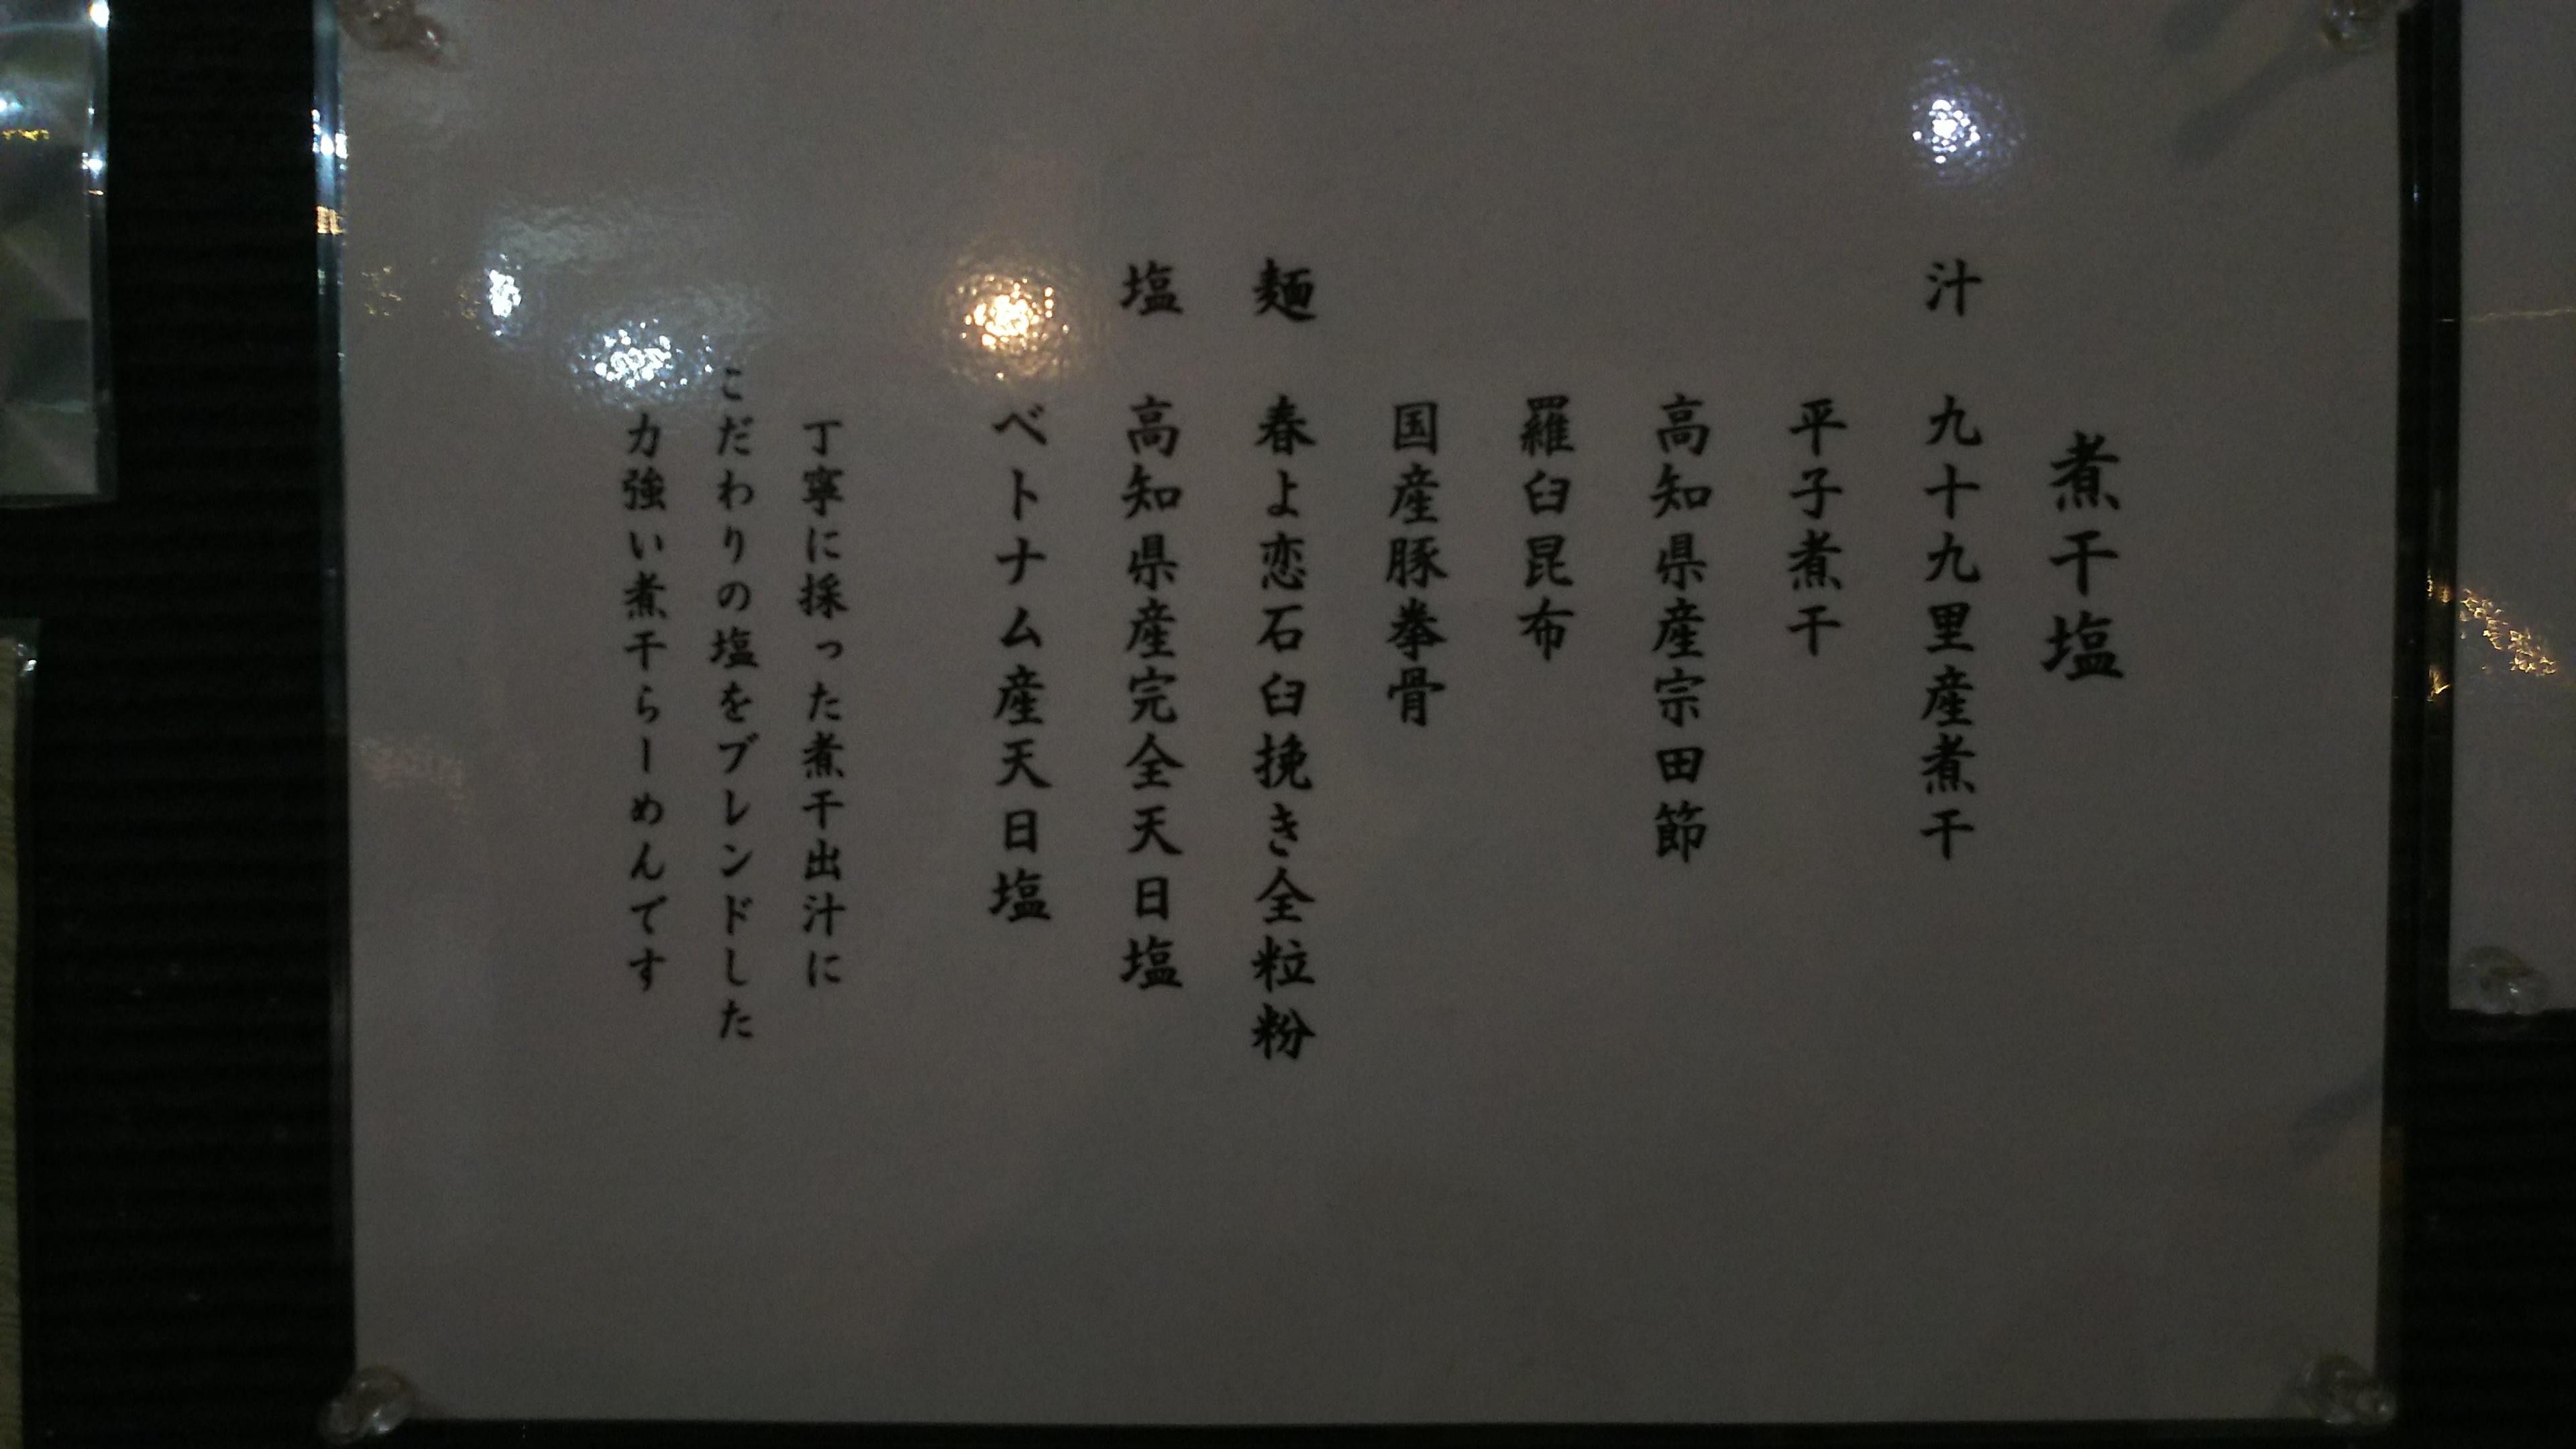 煮干塩
汁 九十九里産煮干
平子煮干
高知県産宗田節
羅臼昆布
国産豚拳骨
麺 春よ恋石臼挽き全粒粉
塩 高知県産完全天日塩
ベトナム産天日塩
丁寧に採った煮干出汁に
こだわりの塩をブレンドした
力強い煮干らーめんです